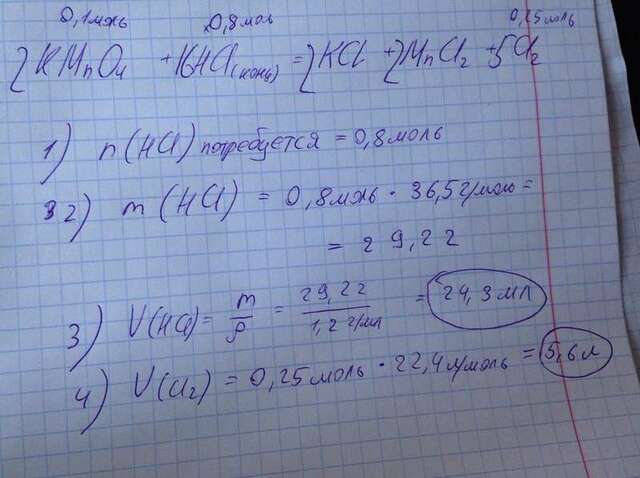 0,1моль 0,8моль 0,25моль
2KMnO4 + 16HCl(конц) = 2KCl + 2MnCl2 + 5Cl2
1) n(HCl) потребуется = 0,8моль
2) m(HCl) = 0,8моль · 36,5г/моль =
= 29,2г
3) V(HCl) = m/ρ = 29,2г/1,2г/мл = 24,3мл
4) V(Cl2) = 0,25моль · 22,4л/моль = 5,6л